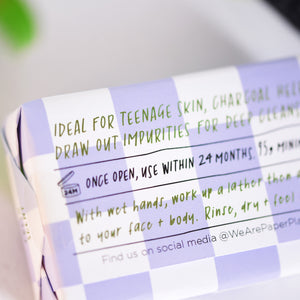 IDEAL FOR TEENAGE SKIN, CHARCOAL HEL
DRAW OUT IMPURITIES FOR DEEP CLEANS
24M ONCE OPEN, USE WITHIN 24 MONTHS. 95g, MINI
With wet hands, work up a lather then a
to your face + body. Rinse, dry + feel
Find us on social media @WeArePaperPla